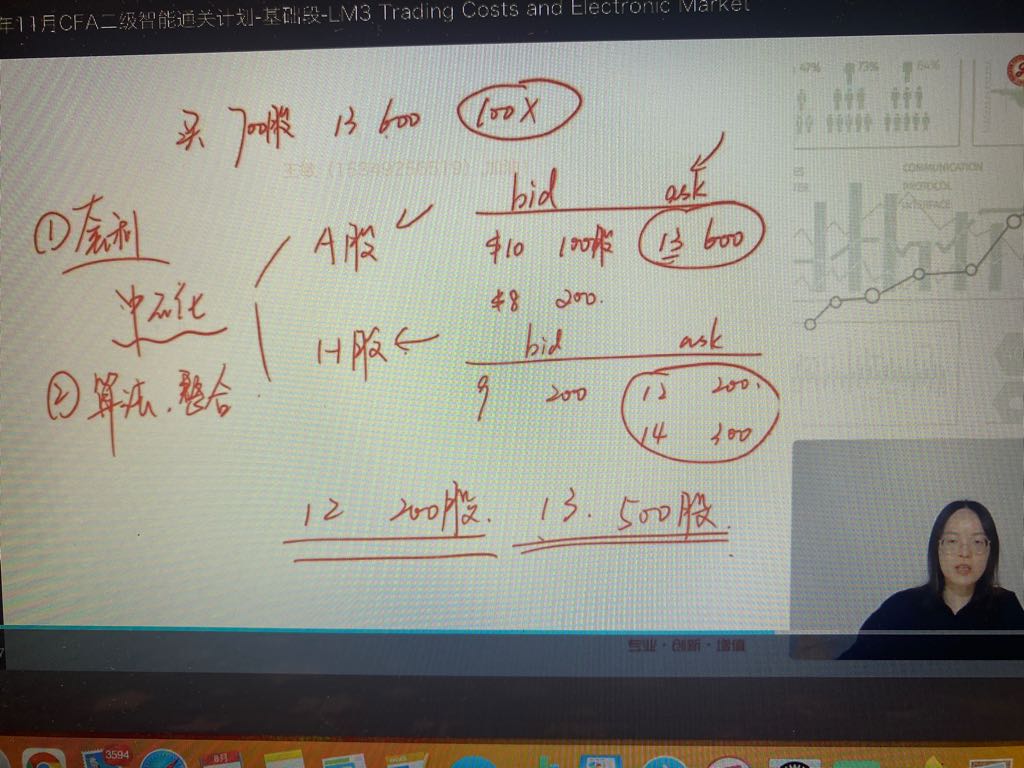 年11月CFA二级智能通关计划-基础段-LM3 Trading Costs and Electronic Market
47% 73% 64%
买 700股 13 600 100X
COMMUNICATION
PROTOCOL
INTERFACE
bid ask
① 套利
A股 $10 100股 13 600
$8 200.
中石化
bid ask
H股
9 200 12 200.
② 算法、整合
14 300
12 200股. 13. 500股.
专业·创新·增值
3594
8月